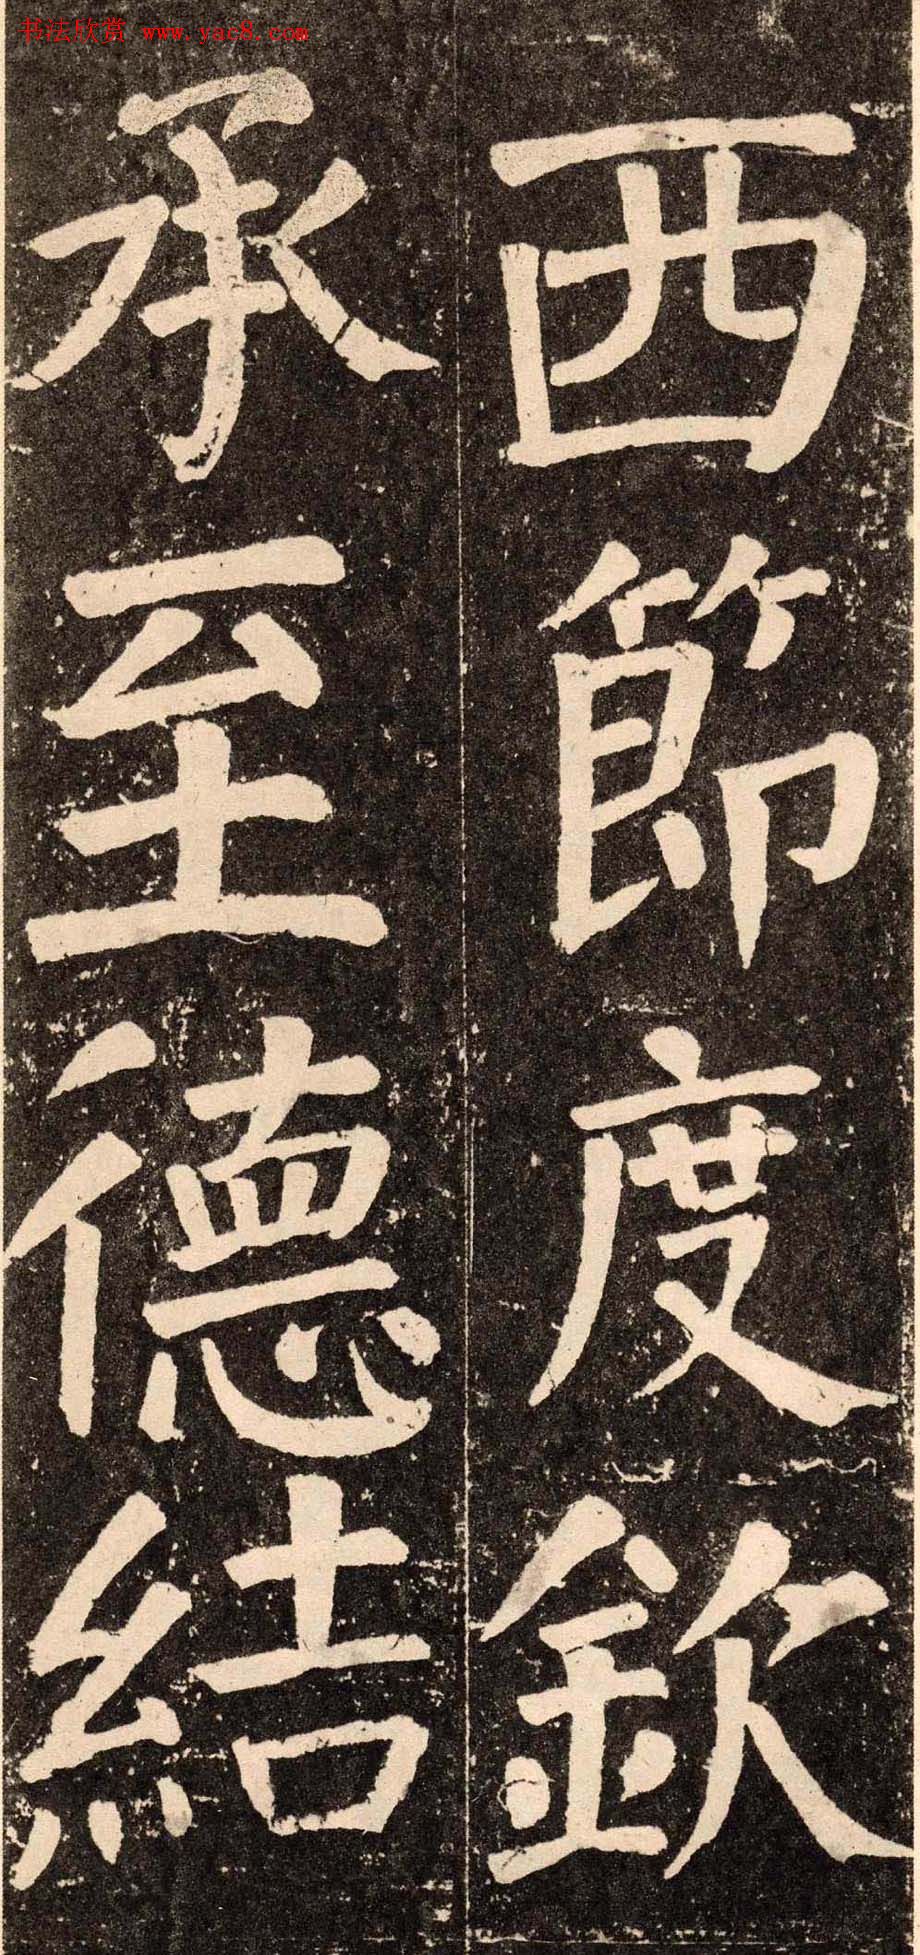 书法欣赏 www.yac8.com
西節度欽
承至德結